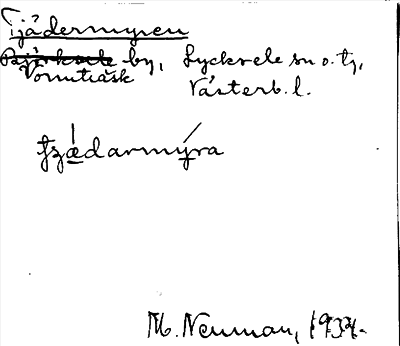 Tjädermyren
Björksele by, Lycksele sn o. tg,
Vormträsk
Västerb. l.
tzædarmýra
M. Neuman, 1934.